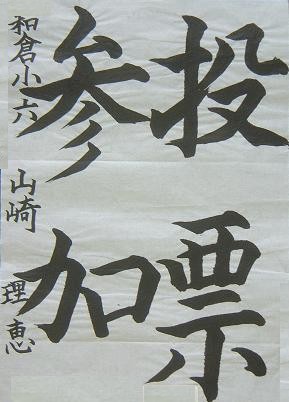 投票
参加
和倉小六 山崎理恵